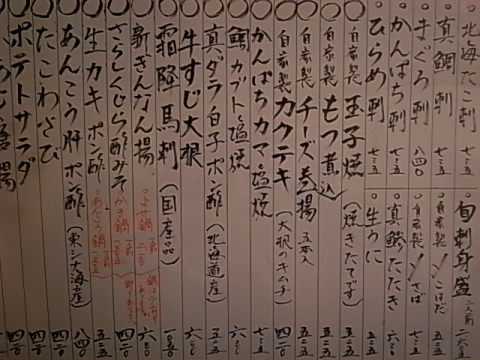 旬刺身盛 二人前
北海たこ刺 七二五
自家製 〆こはだ 五二五
真鯛刺 七三五
自家製 〆さば
まぐろ刺 八四〇
真鯵たたき 六三〇
かんぱち刺 七三五
生うに
ひらめ刺 七三五
自家製 玉子焼 (焼きたてです) 五二五
自家製 もつ煮込 五二五
自家製 チーズ参揚 五本入 五二五
自家製 カクテキ (大根のキムチ) 四二〇
かんぱちカマ塩焼 七三五
鯛カブト塩焼 六三〇
真ダラ白子ポン酢 (北海道産) 五二五
牛すじ大根 五二五
霜降馬刺 (国産品) 一〇五〇
新ぎんなん揚 六三〇
さらしくじら酢みそ 四二〇
生カキポン酢 五二五
あんこう肝ポン酢 (東シナ海産) 八四〇
たこわさび 四二〇
ポテトサラダ 四二〇
よせ鍋
かき鍋
あんこう鍋